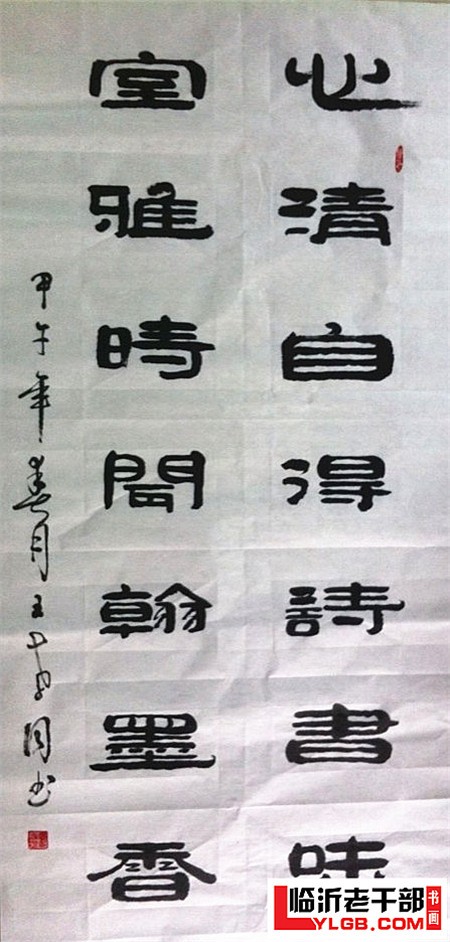 心清自得詩書味
室雅時聞翰墨香
甲午年春月王
同书
临沂老干部书画
LYLGB.COM